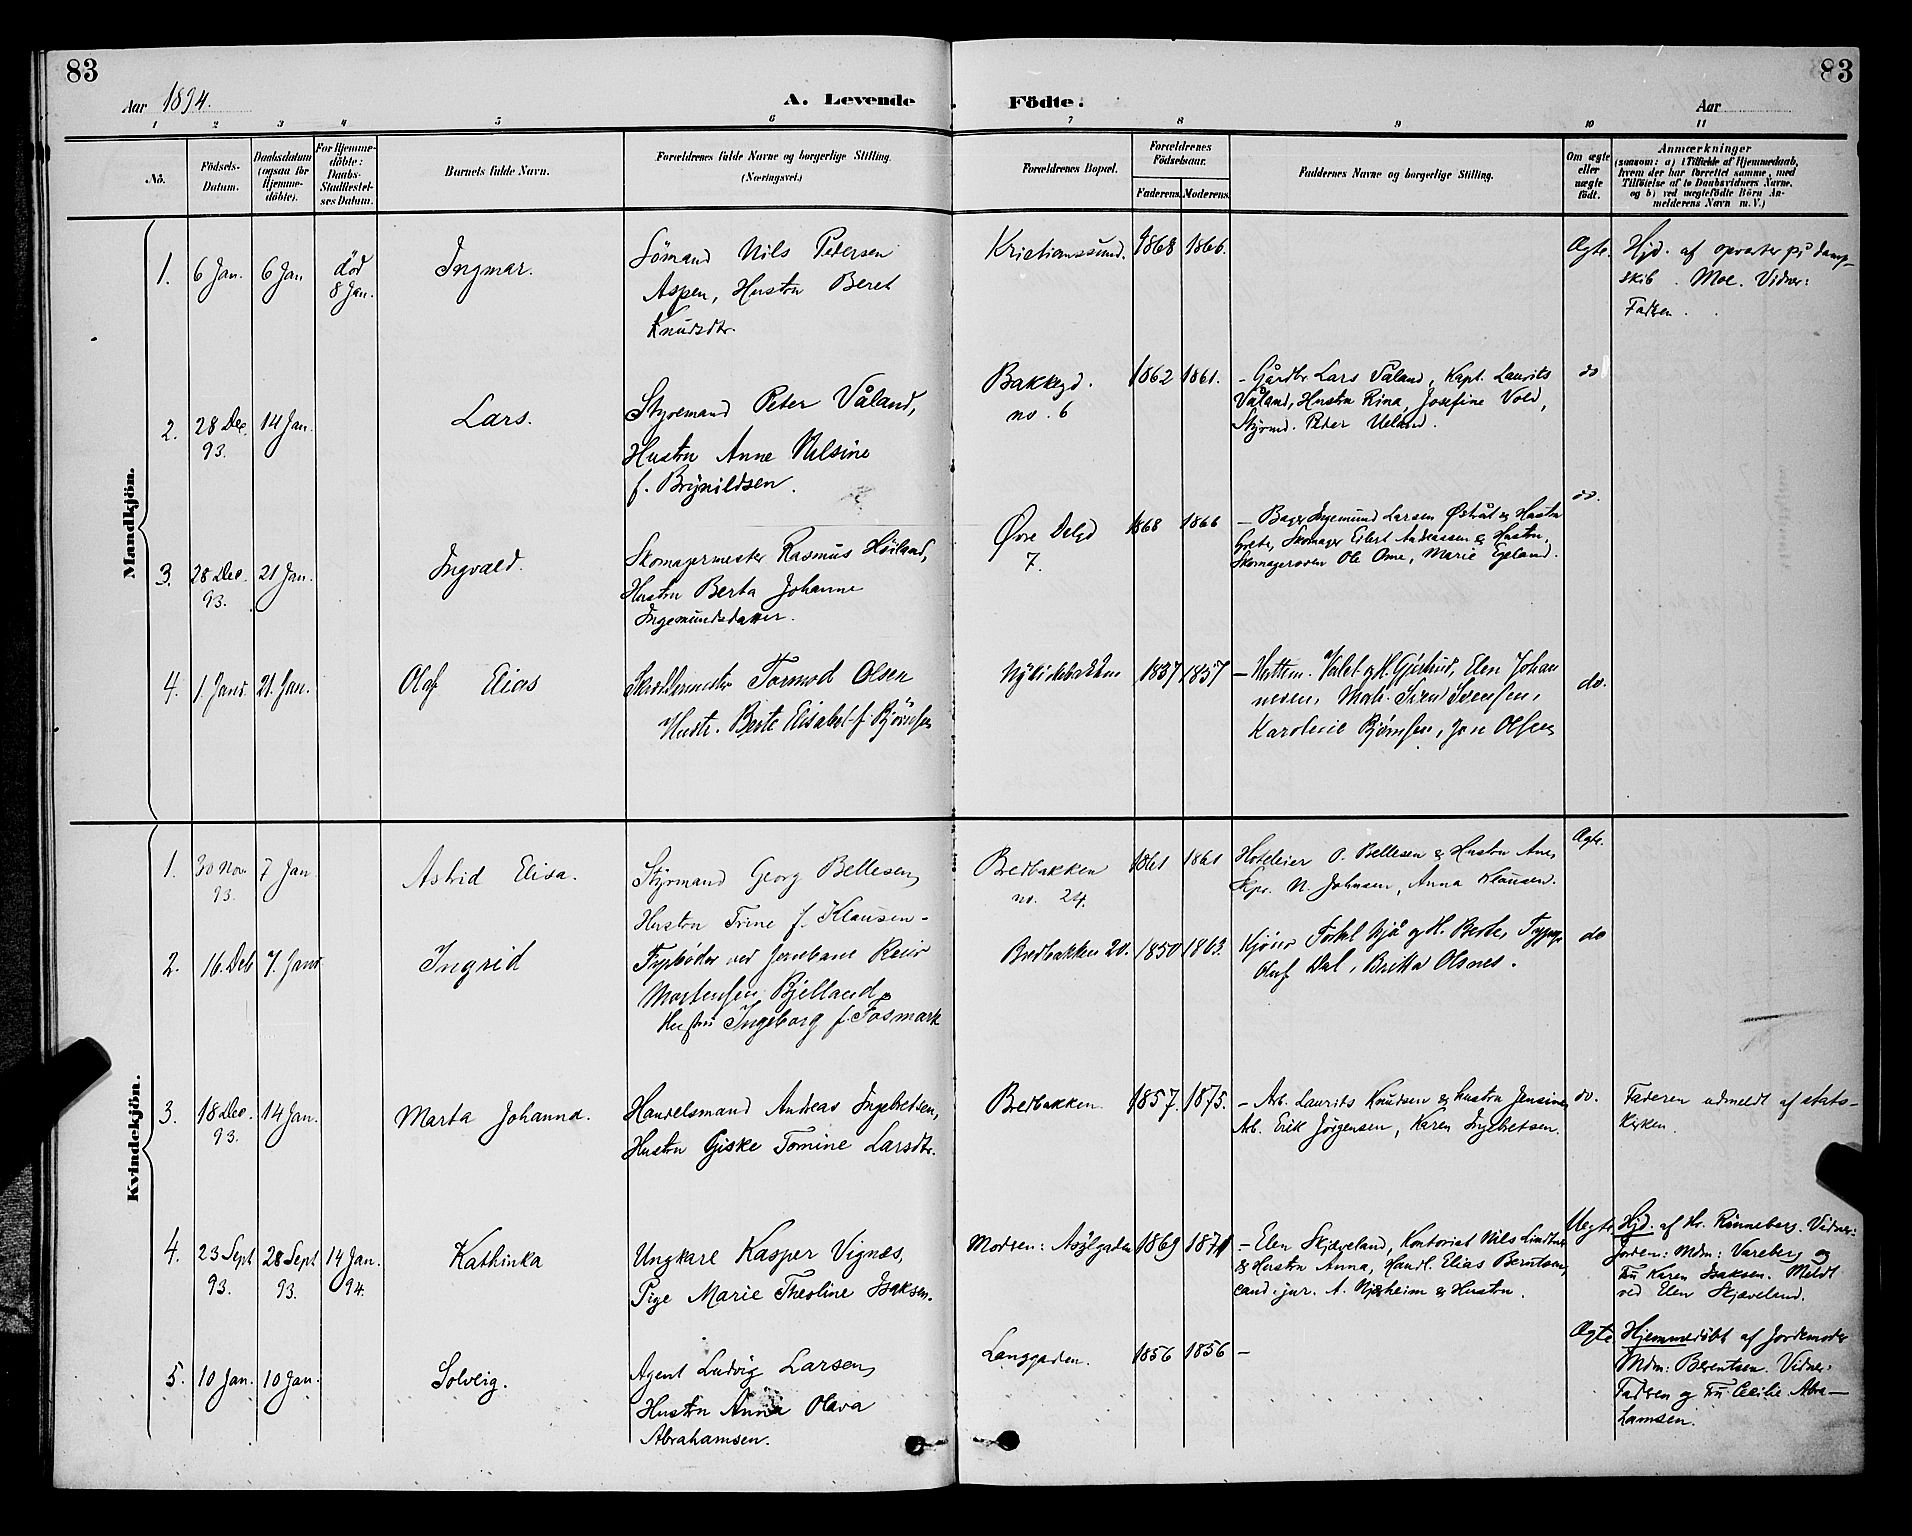 83
83
Aar 1894.
A. Levende Födte.
Aar
1 2 3 4 5 6 7 8 9 10 11
No.
Födsels-
Datum.
Daabsdatum
(ogsaa for
Hjemme-
döbte).
For Hjemme-
döbte:
Daabs-
Stadfæstel-
ses Datum.
Barnets fulde Navn.
Forældrenes fulde Navne og borgerlige Stilling.
(Næringsvei.)
Forældrenes Bopæl.
Forældrenes
Födselsaar.
Faderens. Moderens.
Faddernes Navne og borgerlige Stilling.
Om ægte
eller
uægte
födt.
Anmærkninger
(saasom: a) i Tilfælde af Hjemmedaab,
hvem der har forrettet samme, med
Tilföielse af to Daabsvidners Navne,
og b) ved uægtefödte Börn An-
melderens Navn m. V.)
Mandkjön.
1. 6 Jan. 6 Jan død
8 Jan.
Ingmar.
Sømand Nils Petersen
Aspen, Hustru Beret
Knudsdtr.
Kristianssund. 1868 1866.
Ægte.
Hjd. af opvarter på damp-
skib. Moe. Vidner:
Fadren.
2. 28 Dec. 14 Jan.
93.
Lars.
Styrmand Peter Våland,
Hustru Anne Nilsine
f. Brynildsen.
Bakkegd.
no. 6
1862 1861.
- Gårdbr Lars Våland, Kapt. Laurits
Våland, Hustru Rina, Josefine Vold,
Styrmd. Peder Ueland.
do
3. 28 Dec. 21 Jan.
93.
Ingvald.
Skomagermester Rasmus Høiland,
Hustru Berta Johanne
Ingemundsdatter.
Øvre Dalgd
7.
1868 1866
- Bager Ingemund Larsen Østråt og Hustru
Grete, Skomager Eilert Andreassen og Hustru,
Skomagersven Ole Ome, Marie Egeland.
do.
4. 1 Janr 21. Jan.
Olaf Elias
Skræddermester Tormod Olsen
Hustr. Berte Elisabet f. Bjørnsen
1837 1857
Elen Johan
nesen,
Karoline Bjørnsen, Jon Olsen
do.
Kvindekjön.
1. 30 Nov. 7 Jan
93.
Astrid Elisa.
Styrmand Georg Bellesen,
Hustru Trine f. Klausen-
Bredbakken
no. 24.
1861 1861
Hoteleier O. Bellesen & Hustru Ane,
Skpr. N. Johnsen, Anna Klausen.
Ægte.
2. 16. Deb 7. Janr
Ingrid
Fyrbøder ved Jernbane Reier
Mortensen Bjelland,
Hustru Ingeborg f. Fosmark
Bredbakken 20. 1850 1863.
Olaf Dal, Britta Olsnes.
do
3. 18 Dec. 14 Jan.
93.
Marta Johanna.
Handelsmand Andreas Ingebretsen,
Hustru Giske Tomine Larsdtr.
Bredbakken. 1857. 1875.
- Arb. Laurits Knutsen & hustru Jensine,
Arb. Erik Jørgensen, Karen Ingebretsen.
do.
Faderen udmeldt af stats-
kirken.
4. 23 Sept 28 Sept 14 Jan.
93. 93. 94.
Kathinka
Ungkarl Kasper Vignæs,
Pige Marie Theoline Isaksen.
Modren: Asylgaden 1869 1871
- Elen Skjæveland, Kontorist Nils Lindtner
& Hustru Anna, Handl. Elias Berntsen,
cand. jur. A. Njærheim & Hustru.
Uegte
Hjd. af Hr. Rønneberg. Vidner:
Jordem: Mdm: Vareberg og
Fru Karen Isaksen. Meldt
ved Elen Skjæveland.
5. 10 Jan. 10 Jan.
Solveig.
Agent Ludvig Larsen,
Hustru Anna Olava
Abrahamsen.
Langgaden. 1856 1856 -
Ægte
Hjemmedøbt af Jordemoder
Mdm: Berentsen. Vidner:
Fadren og Fru Cecilie Abra-
hamsen.